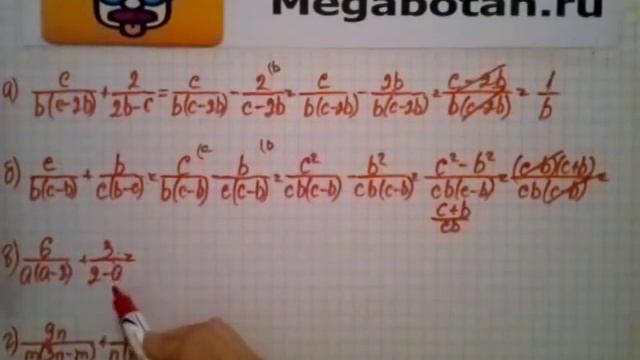 Megabotan.ru
а) c/(b(c-2b)) + 2/(2b-c) = c/(b(c-2b)) - 2/(c-2b) (b = c/(b(c-2b)) - 2b/(b(c-2b)) = (c-2b)/(b(c-2b)) = 1/b
б) c/(b(c-b)) + b/(c(b-c)) = c/(b(c-b)) (c - b/(c(c-b)) (b = c²/(cb(c-b)) - b²/(cb(c-b)) = (c²-b²)/(cb(c-b)) = ((c-b)(c+b))/(cb(c-b)) =
(c+b)/(cb)
в) 6/(a(a-2)) + 3/(2-a) =
г) 9n/(m(3n-m)) +